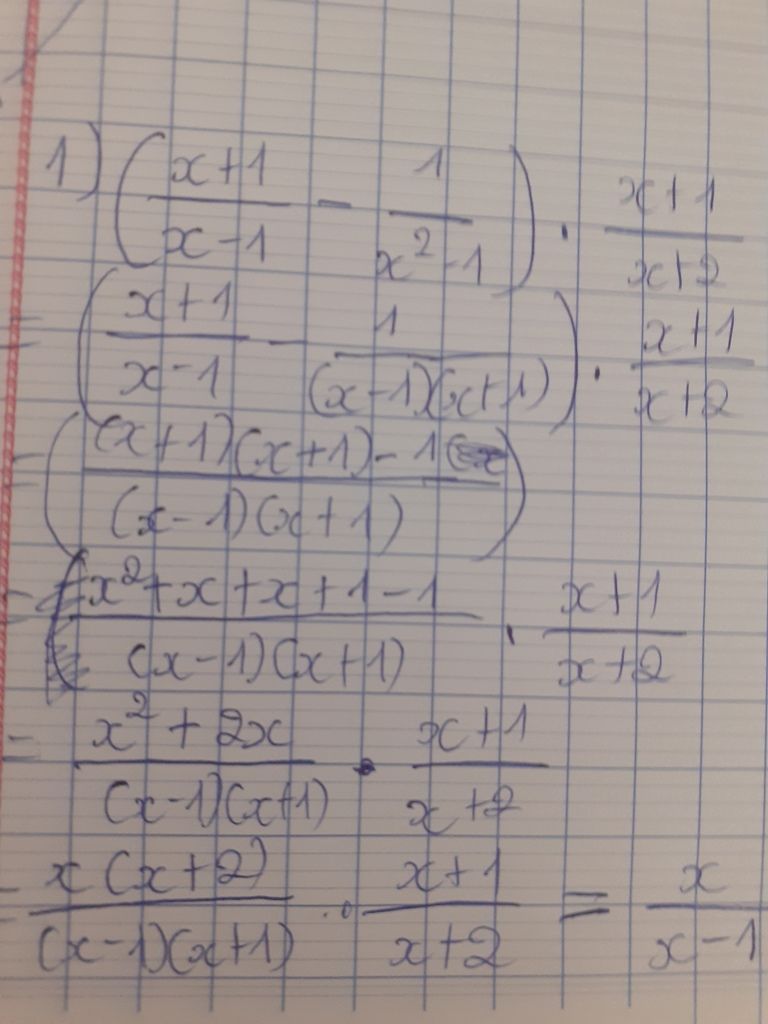 1) ((x+1)/(x-1) - 1/(x²-1)) · (x+1)/(x+2)
= ((x+1)/(x-1) - 1/((x-1)(x+1))) · (x+1)/(x+2)
= (((x+1)(x+1)-1)/((x-1)(x+1)))
= (x²+x+x+1-1)/((x-1)(x+1)) · (x+1)/(x+2)
= (x²+2x)/((x-1)(x+1)) · (x+1)/(x+2)
= (x(x+2))/((x-1)(x+1)) · (x+1)/(x+2) = x/(x-1)